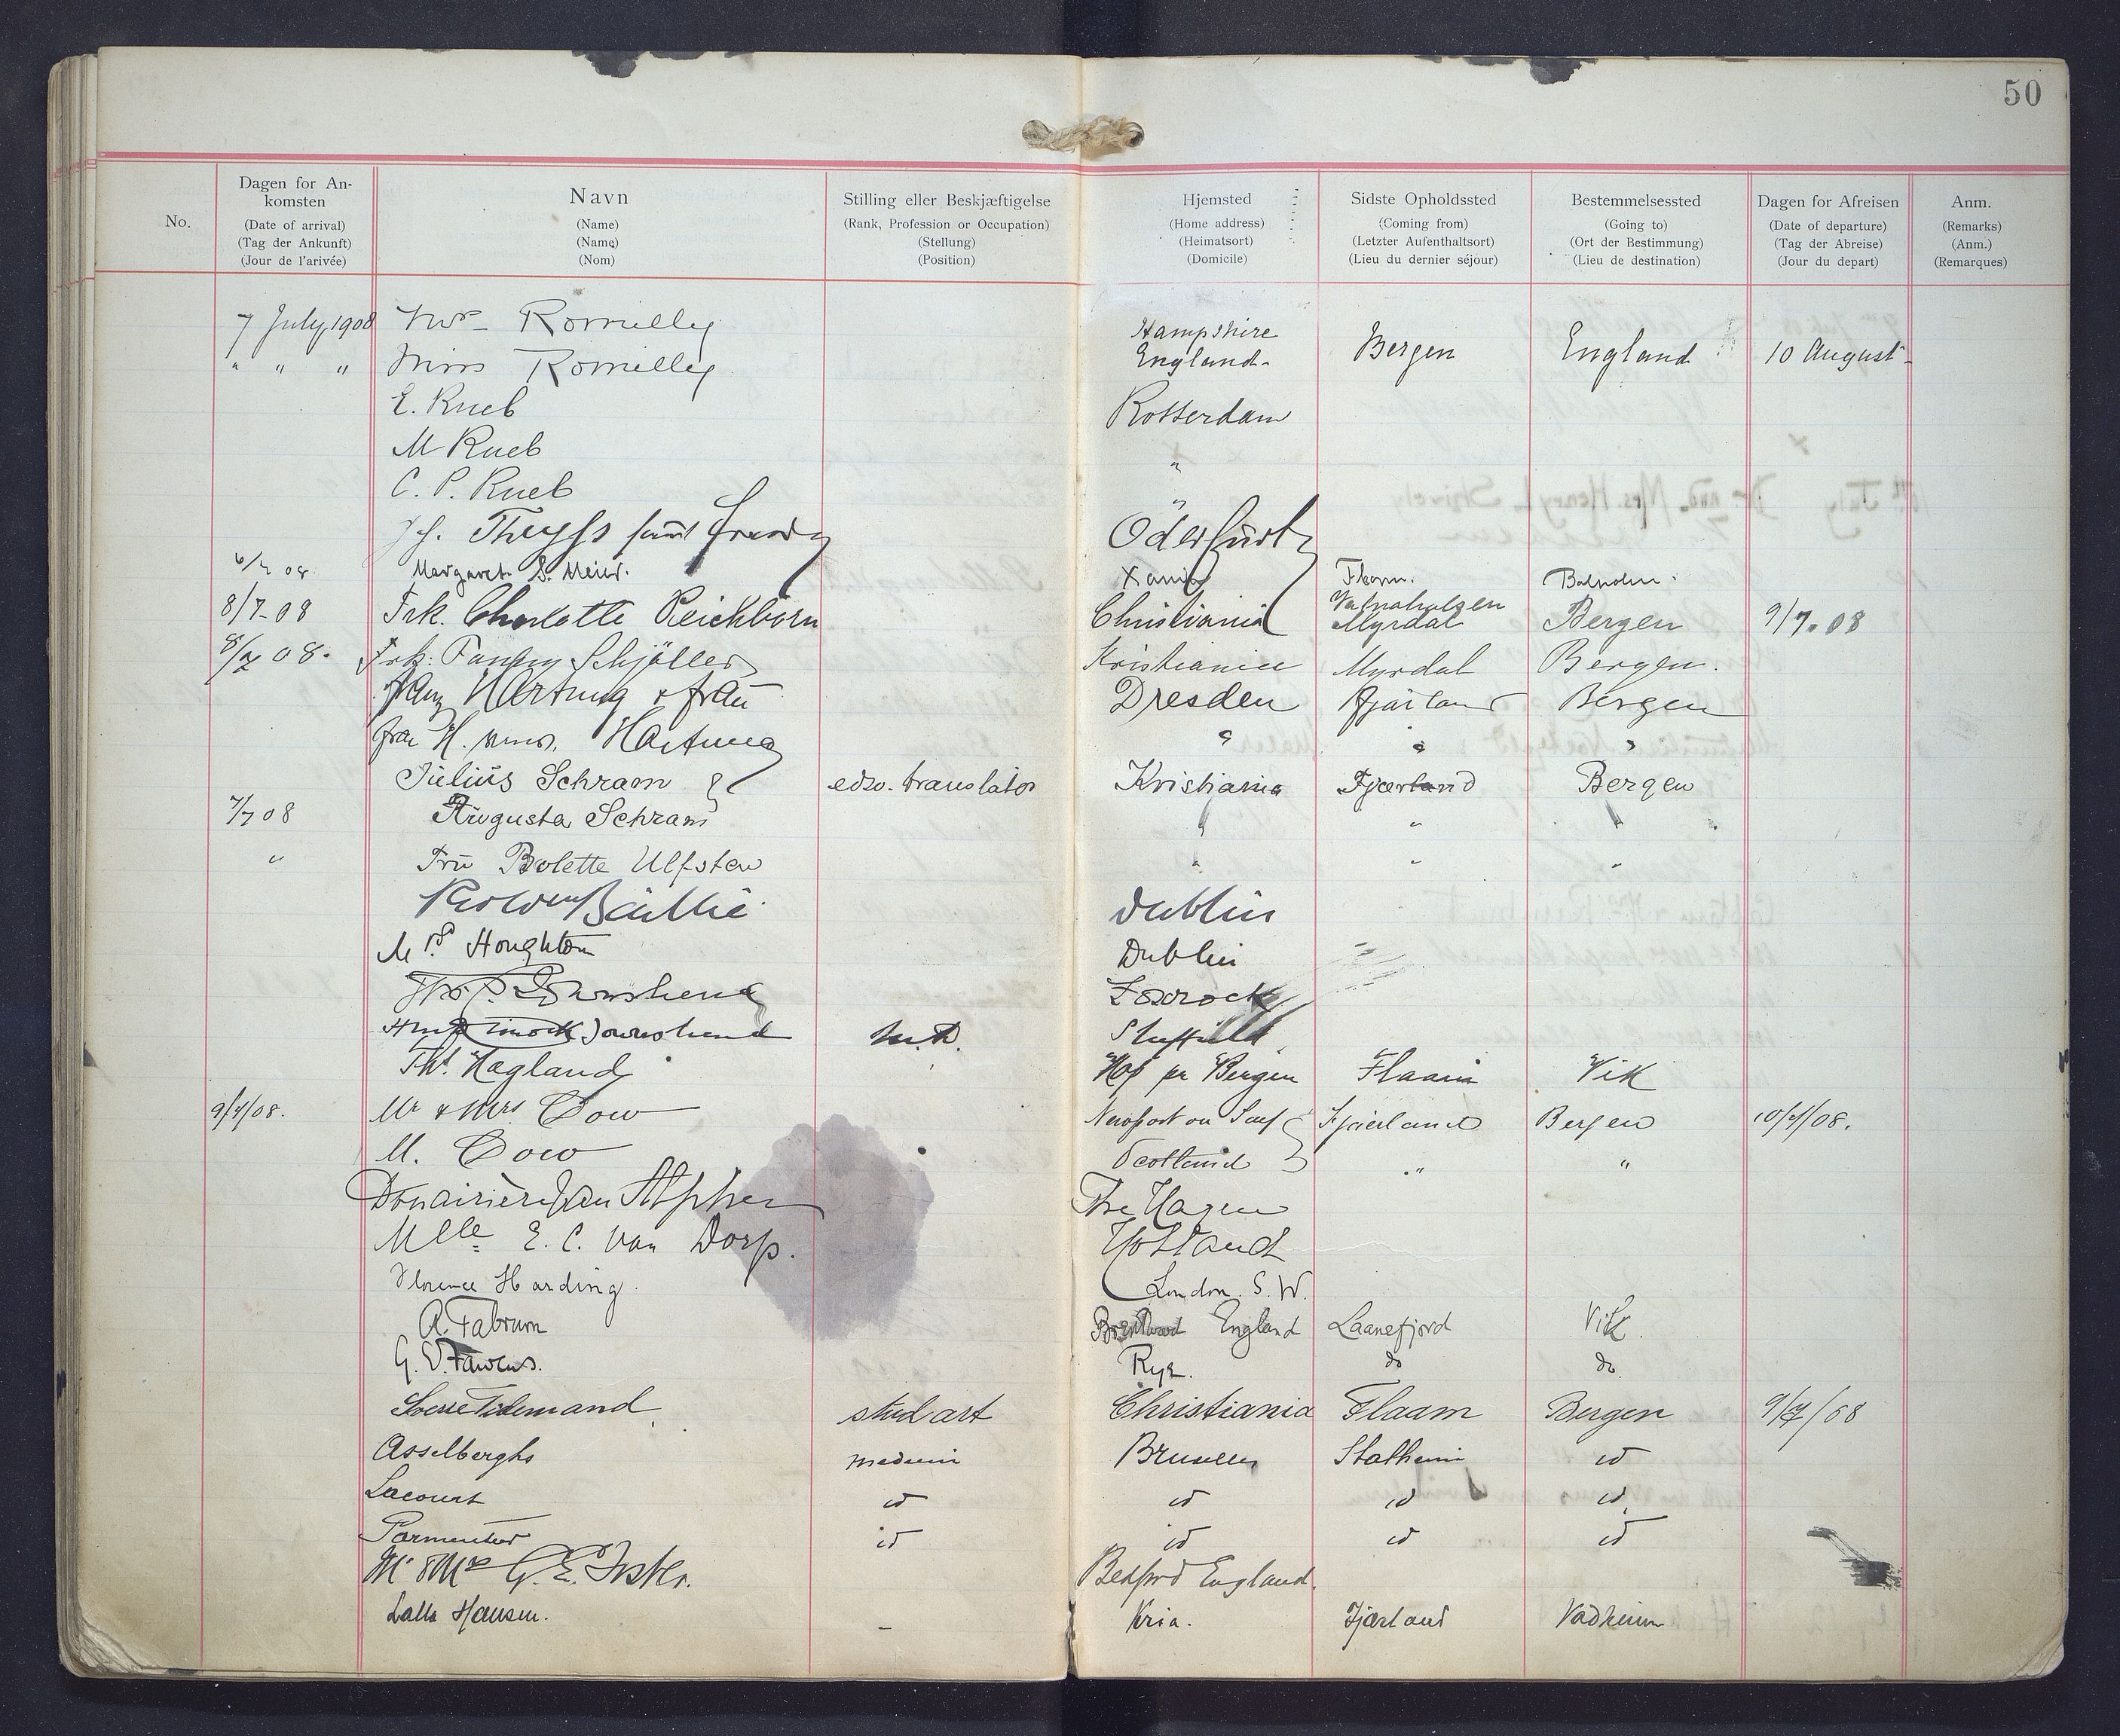 50
No.
Dagen for An-
komsten
(Date of arrival)
(Tag der Ankunft)
(Jour de l'arivée)
Navn
(Name)
(Name)
(Nom)
Stilling eller Beskjæftigelse
(Rank, Profession or Occupation)
(Stellung)
(Position)
Hjemsted
(Home address)
(Heimatsort)
(Domicile)
Sidste Opholdssted
(Coming from)
(Letzter Aufenthaltsort)
(Lieu du dernier séjour)
Bestemmelsessted
(Going to)
(Ort der Bestimmung)
(Lieu de destination)
Dagen for Afreisen
(Date of departure)
(Tag der Abreise)
(Jour du depart)
Anm.
(Remarks)
(Anm.)
(Remarques)
7 July, 1908 Mrs Romilly Hampshire
" " " Miss Romilly England- Bergen England 10 August-
E. Rueb Rotterdam
M Rueb "
C. P. Rueb "
Oderfurt
Margaret S. Meier. Xania Flaam. Balholm.
8/7-08 Frk. Charlotte Reichborn Christiania Myrdal Bergen 9/7.08
8/7 08. Frk: Fanny Schjöller Kristiania Myrdal Bergen.
Hartung & frau Dresden Fjärland Bergen
H. Hartung " " "
Julius Schram edsv. translatør Kristiania Fjærland Bergen
7/7 08 Augusta Schram " " "
" Fru Bolette Ulfsten " " "
Baillie Dublin
Mrs Houghton Dublin
Townshend Foxrock
Townshend M.D. Sheffield
Th. Hagland Hop pr Bergen Flaam Vik
9/7/08. Mr & Mrs Dow Newport on Fjaerland Bergen 10/7/08.
M. Dow Scotland " "
Douairière van The Hague
Mlle E. C. van Dorp. Holland
Florence Harding. London. S. W.
A. Fabrum Brentwood England Laanefjord Vik.
G. Rye. do do.
Tidemand stud art Christiania Flaam Bergen 9/7/08
Asselberghs Bruxelles Stalheim id
Lacourt id id id id
Parmentier id id id id
Mr & Mrs G. E. Bedford England.
Lalla Hansen. - Kria. Fjærland Vadheim